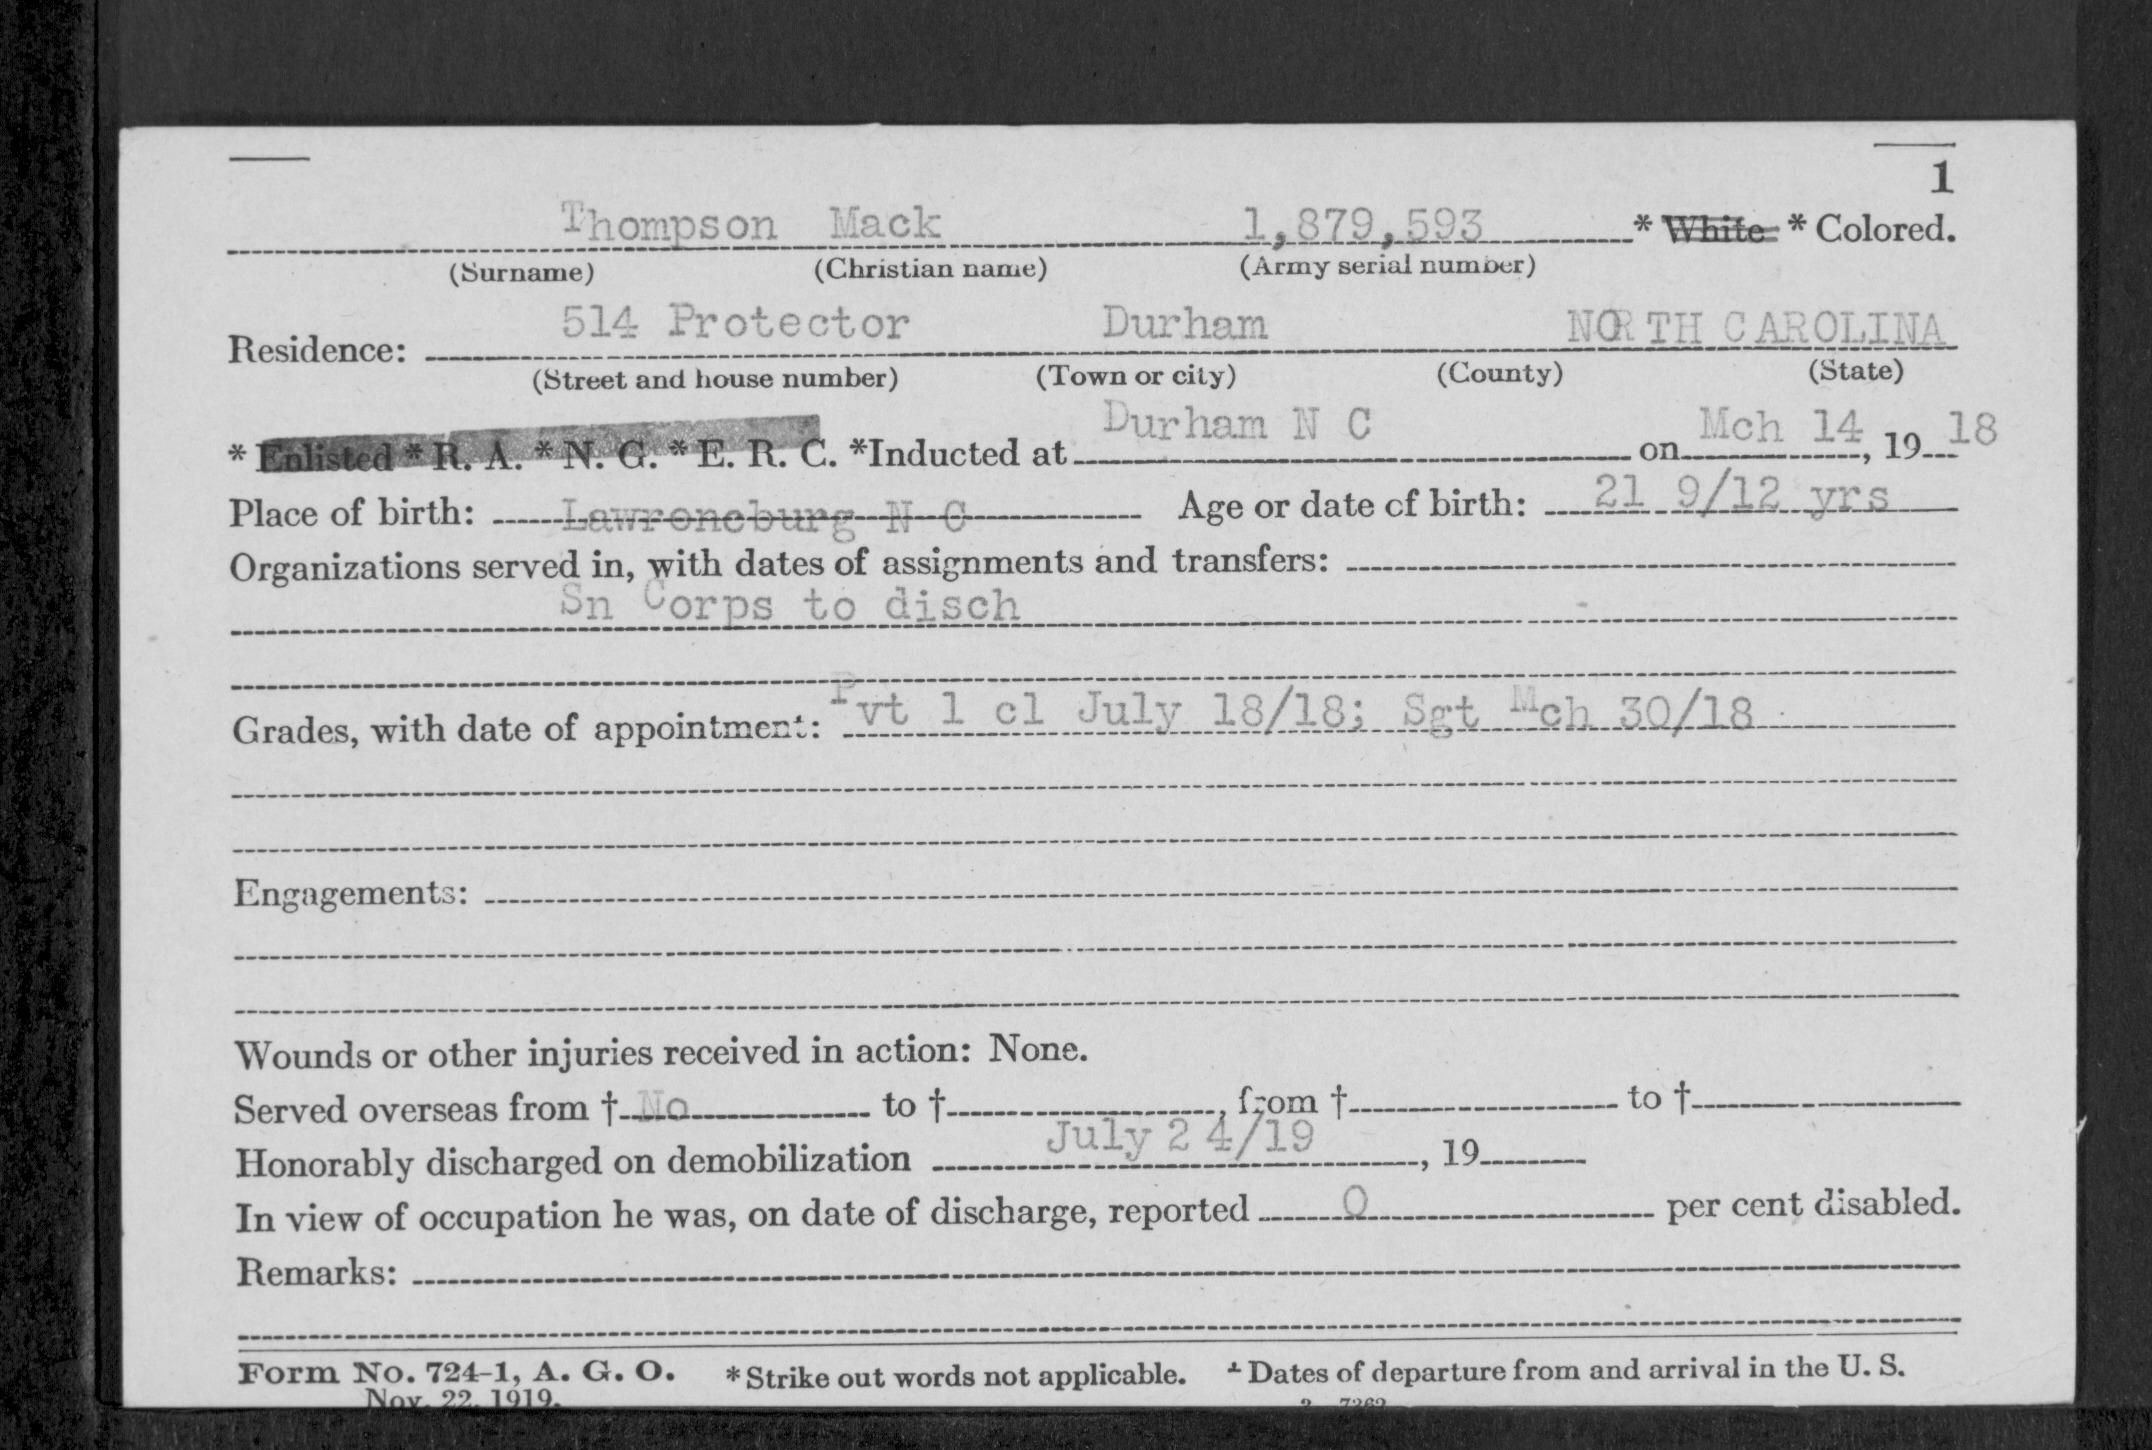 1
Thompson Mack 1,879,593 * White * Colored.
(Surname) (Christian name) (Army serial number)
514 Protector Durham NORTH CAROLINA
Residence:
(Street and house number) (Town or city) (County) (State)
Durham N C Mch 14 18
* Enlisted * R. A. * N. G. * E. R. C. *Inducted at on , 19
Place of birth: Lawroneburg N C Age or date of birth: 21 9/12 yrs
Organizations served in, with dates of assignments and transfers:
Sn Corps to disch
Grades, with date of appointment: Pvt 1 cl July 18/18; Sgt Mch 30/18
Engagements:
Wounds or other injuries received in action: None.
Served overseas from † No to † , from † to †
Honorably discharged on demobilization July 24/19 , 19
In view of occupation he was, on date of discharge, reported 0 per cent disabled.
Remarks:
Form No. 724-1, A. G. O. * Strike out words not applicable. † Dates of departure from and arrival in the U. S.
Nov. 22, 1919.